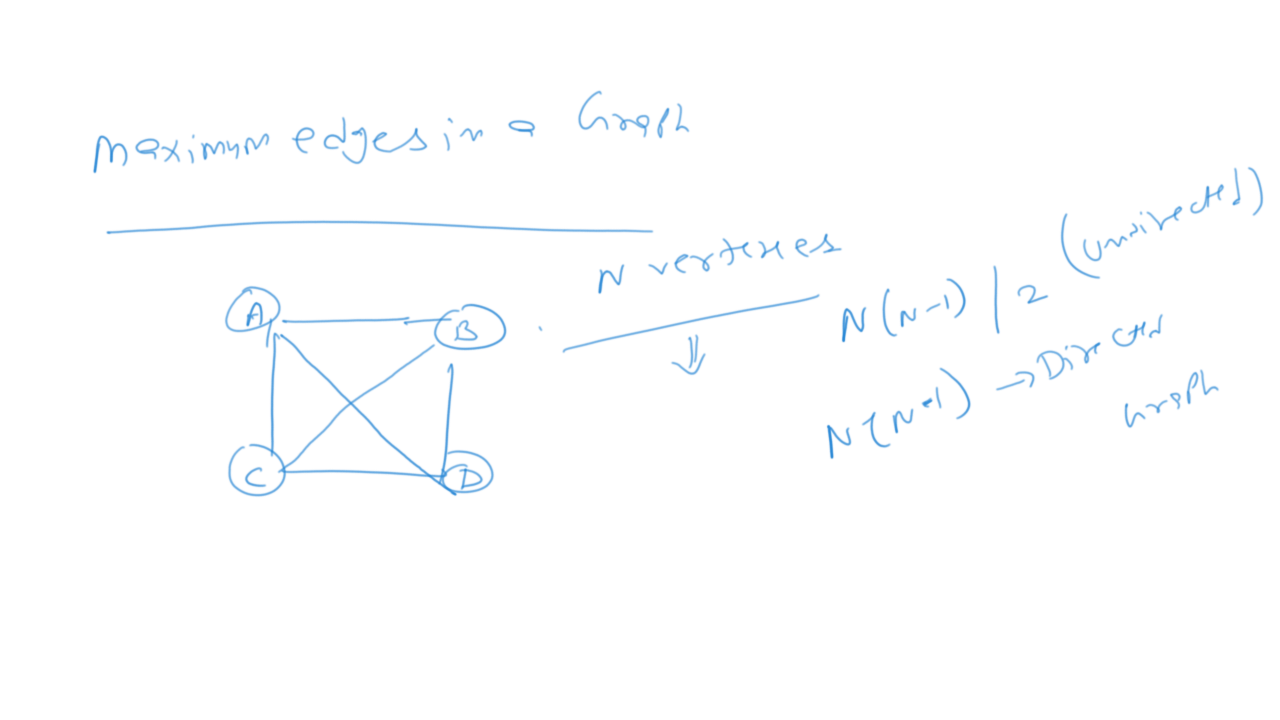 Maximum edges in a Graph
N vertexes
N(N-1) | 2 (undirected)
N(N-1) → Directed
Graph
A
B
C
D